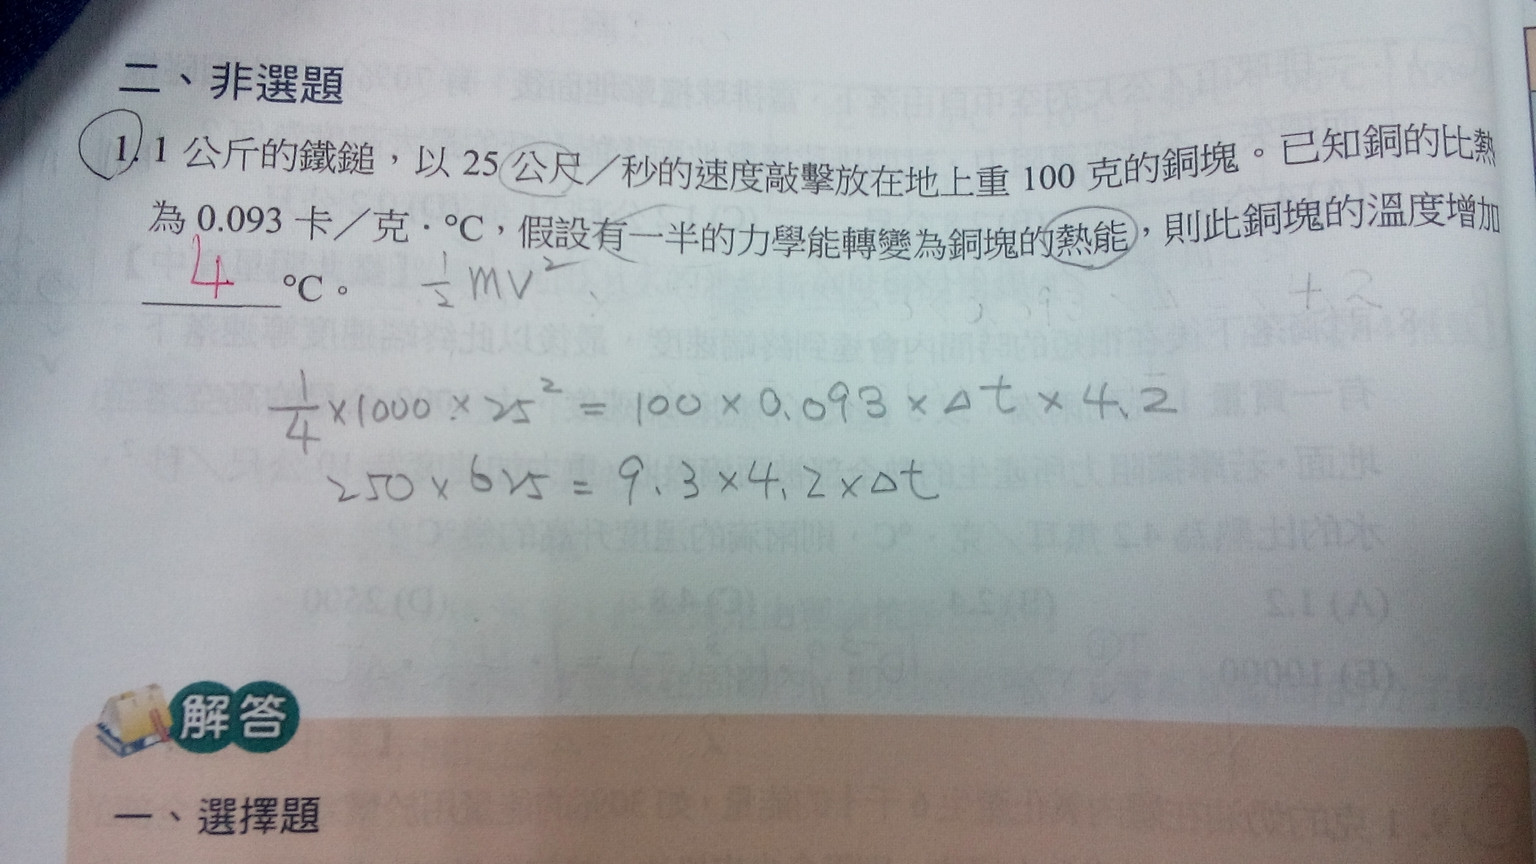 二、非選題
1. 1 公斤的鐵鎚，以 25 公尺／秒的速度敲擊放在地上重 100 克的銅塊。已知銅的比熱
為 0.093 卡／克．°C，假設有一半的力學能轉變為銅塊的熱能，則此銅塊的溫度增加
4 °C。 1/2 mv²
1/4 × 1000 × 25² = 100 × 0.093 × Δt × 4.2
250 × 625 = 9.3 × 4.2 × Δt
解答
一、選擇題